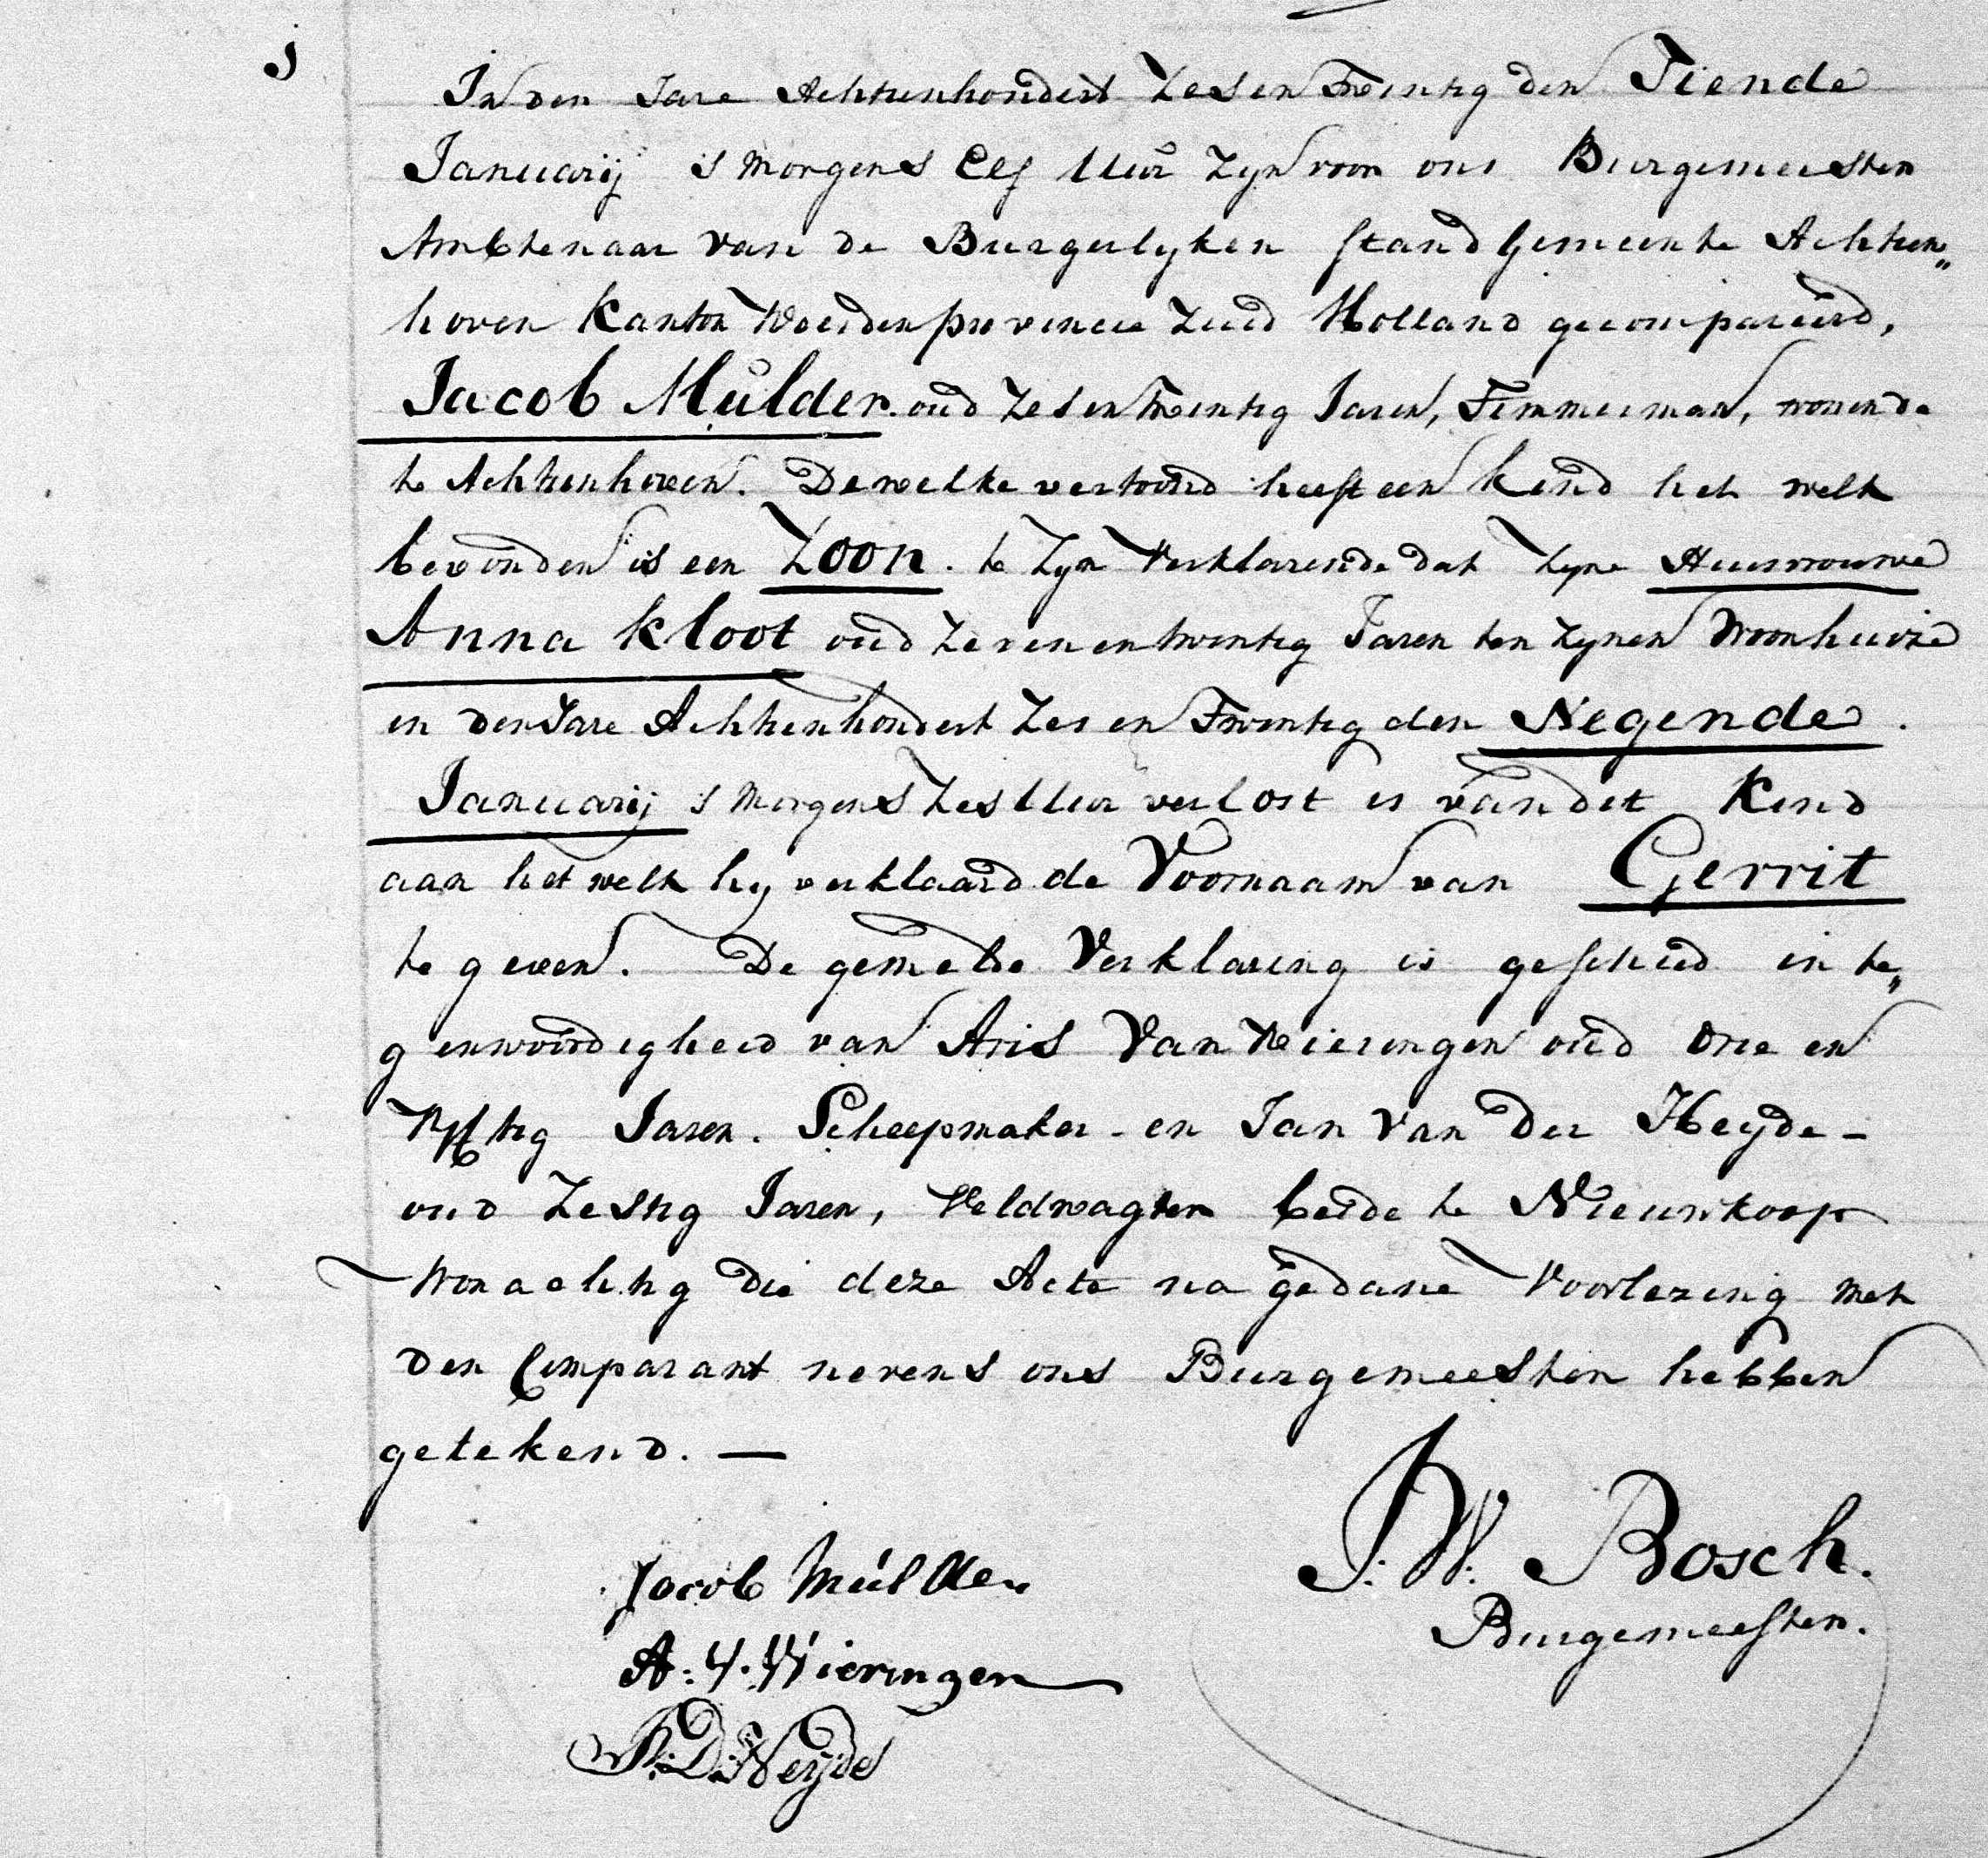 1
In den Jare Achtienhondert Zes en Twintig den Tiende
Januarij s morgens Elf Uur Zyn voor ons Burgemeester
Ambtenaar van de Burgerlyken Stand Gemeente Achtien„
hoven Kanton Woerden provincie Zuid Holland gecompareerd,
Jacob Mulder. oud Zes en Twintig Jaren, Timmerman, wonende
te Achtienhoven. Dewelke vertoond heeft een Kind het welk
bevonden is een Zoon. te Zyn Verklarende dat Zyne Huisvrouwe
Anna Kloot oud Zeven en twintig Jaren ten Zynen Woonhuize
in den Jare Achtienhondert Zes en Twintig den Negende.
Januarij s morgens Zes Uur verlost is van dit Kind
aan het welk hy verklaard de Voornaam van Gerrit
te geven. De gemelde Verklaring is geschied in te„
genwoordigheid van Aris Van Wieringen oud drie en
Vyftig Jaren. Scheepmaker - en Jan Van Der Heyde -
oud Zestig Jaren, Veldwagter beide te Nieuwkoop
Wonachtig die deze Acte na gedane Voorlezing met
den Comparant nevens ons Burgemeester hebben
getekend. —
J: W: Bosch.
Burgemeester.
Jacob Mulder
A: V. Wieringen
V: D: Heyde